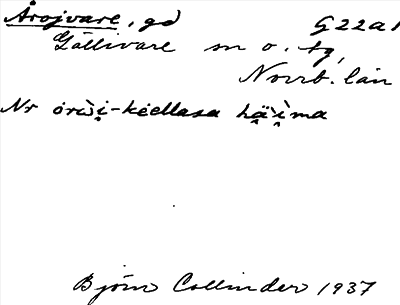 Årojvare, gd G22a1
Gällivare sn o. tg,
Norrb. län
Nr órὼi̯-kéellasa hä̯ì̯ma
Björn Collinder 1937